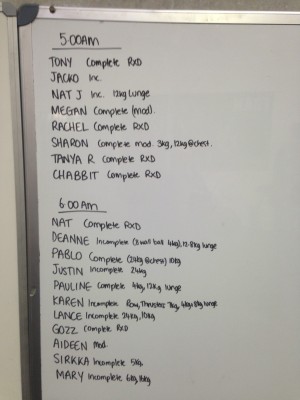 5:00AM
TONY Complete RXD
JACKO Inc.
NAT J Inc. 12kg lunge
MEGAN Complete (mod).
RACHEL Complete RXD
SHARON Complete mod. 3kg, 12kg @chest.
TANYA R Complete RXD
CHABBIT Complete RXD
6:00AM
NAT Complete RXD
DEANNE Incomplete (1 wall ball 4kg), 12-8kg lunge
PABLO Complete (20kg @chest) 10kg
JUSTIN Incomplete 24kg
PAULINE Complete 4kg, 12kg lunge
KAREN Incomplete Row, Thrusters 7kg, 4kg, 8kg lunge
LANCE Incomplete 24kg, 10kg
GOZZ Complete RXD
AIDEEN Mod.
SIRKKA Incomplete 5kg
MARY Incomplete 6kg, 16kg